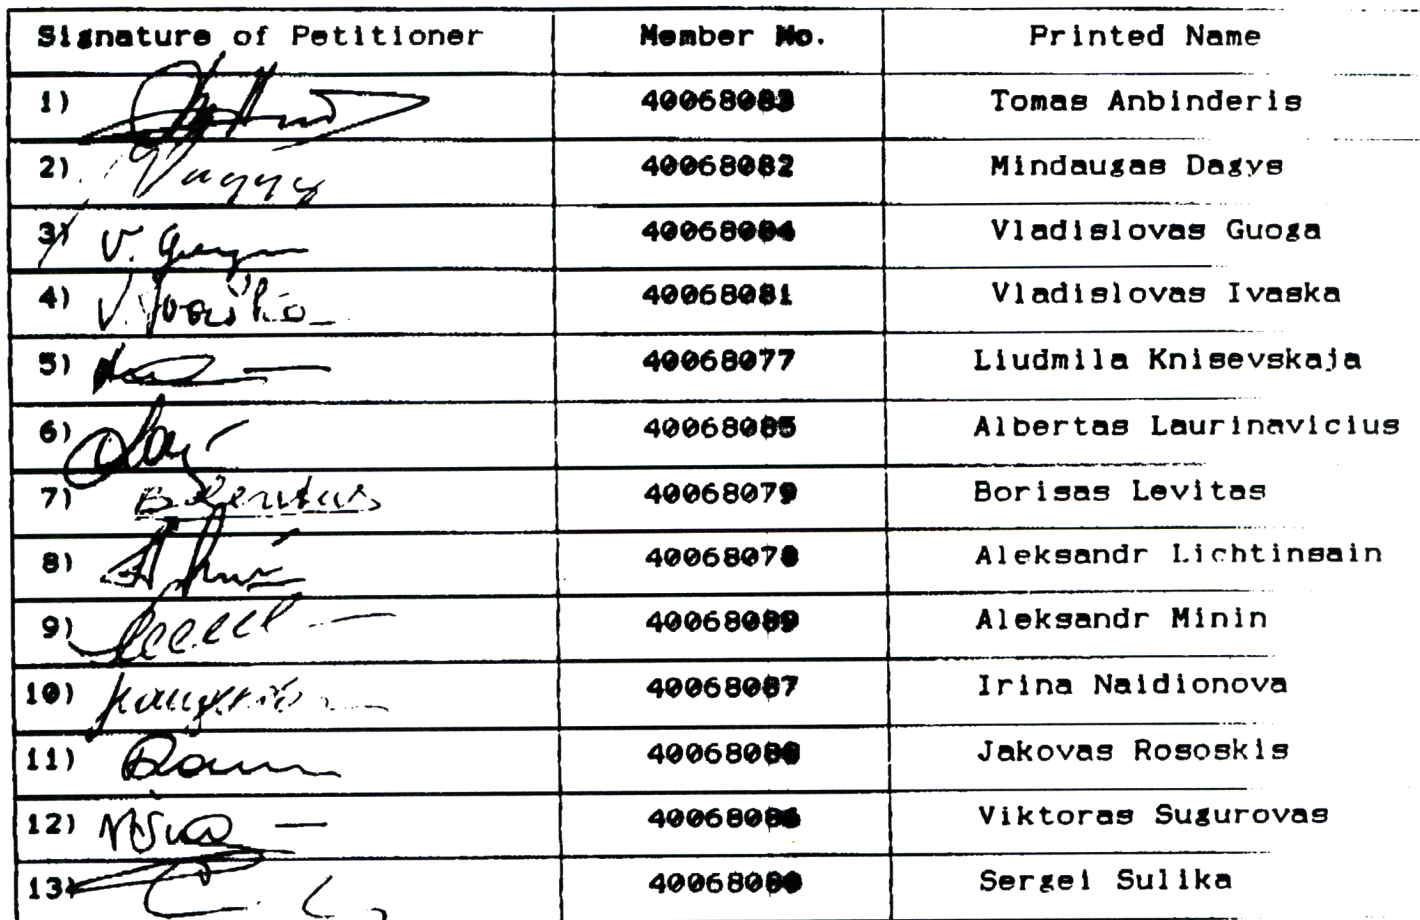 Signature of Petitioner Member No. Printed Name
1) 40068083 Tomas Anbinderis
2) 40068082 Mindaugas Dagys
3) V. 40068084 Vladislovas Guoga
4) V. Ivaška 40068081 Vladislovas Ivaska
5) 40068077 Liudmila Knisevskaja
6) 40068085 Albertas Laurinavicius
7) B Levitas 40068079 Borisas Levitas
8) 40068078 Aleksandr Lichtinsain
9) 40068089 Aleksandr Minin
10) 40068087 Irina Naidionova
11) Jakovas Rososkis
12) 40068086 Viktoras Sugurovas
13) Sergei Sulika